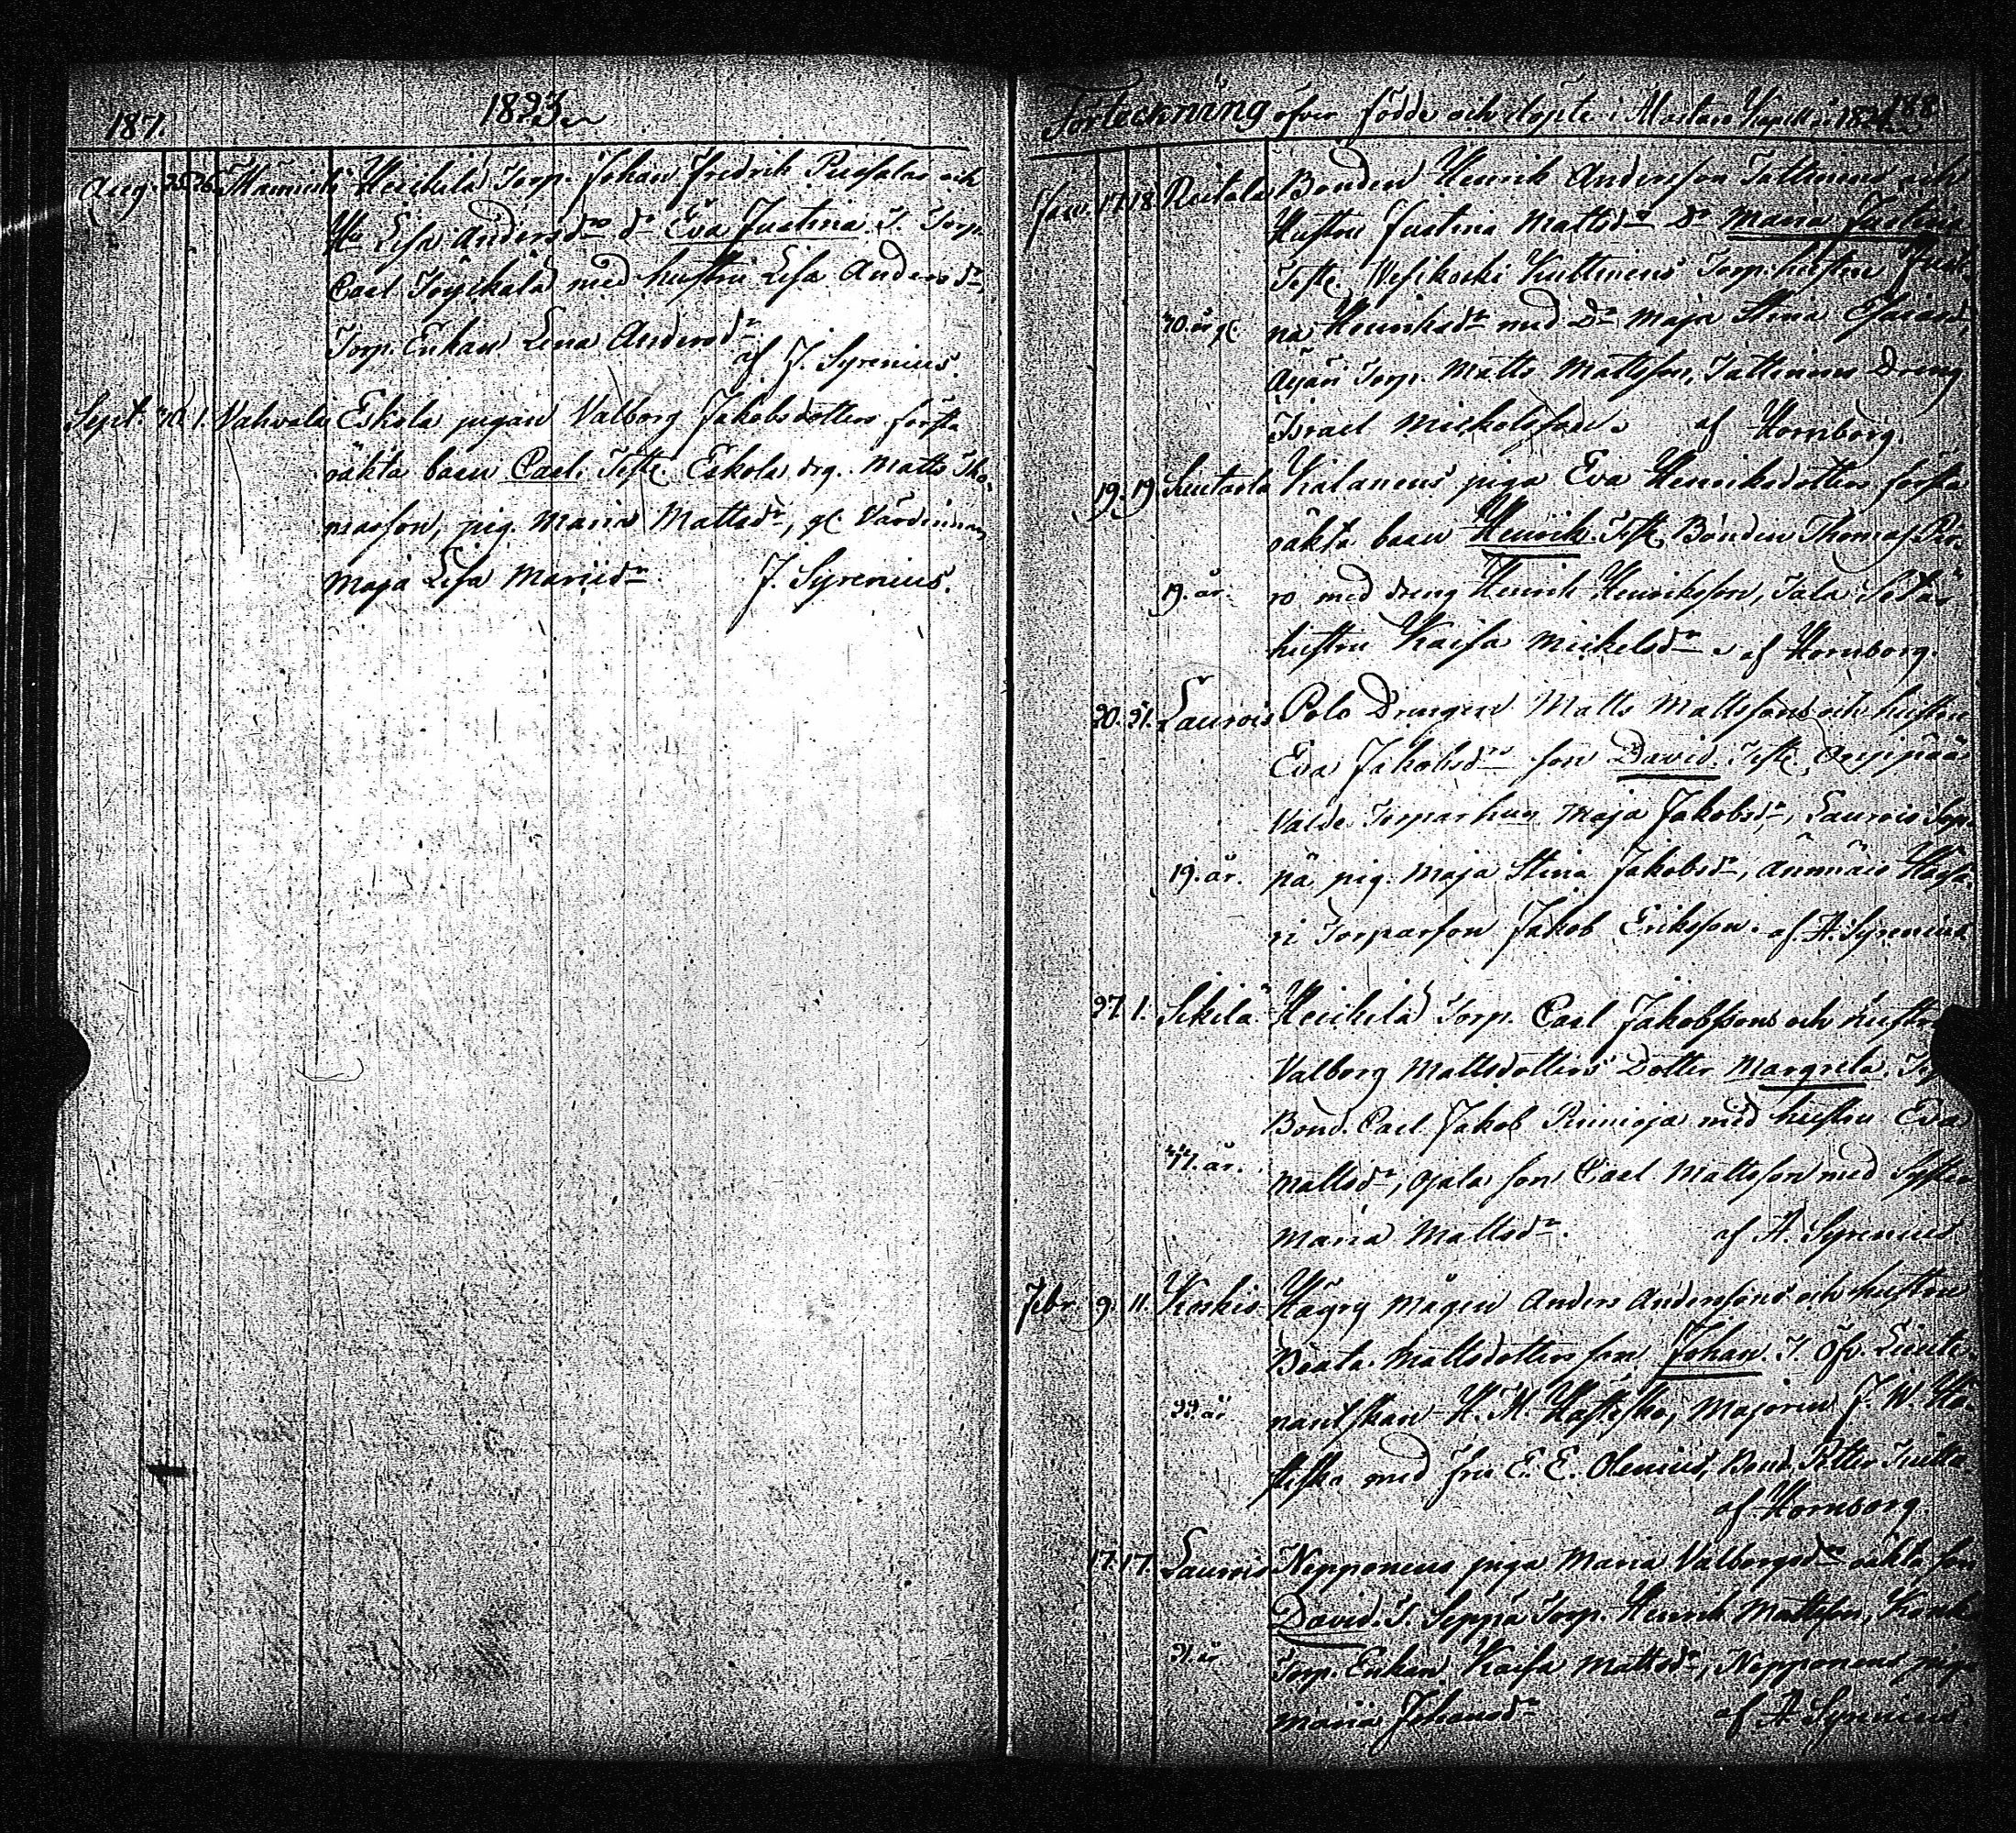 187.
1823
Aug. 25. 26. Heickilä Torp. Johan Fredrik och
Hu Lisa Andersdr dr Eva Justina. T. Torp.
Carl med hustru Lisa Andersdr,
Torp. Enkan Lena Andersdr
af J. Syrenius.
Sept. 1. Vahvala Eskola pigan Valborg Jakobsdotters första
oäkta barn Carl. Teste. Eskola drg. Matts Tho-
masson, pig. Maria Mattsdr, gl. Värdinnan
Maja Lisa Mariidr. J. Syrenius.
Förteckning öfver födde och döpte i Capell 188.
Janu. 17. 18. Bonden Henrik Andersson Tattinens och
Hustru Justina Mattsdr Dr Maria Justina
Teste. Wesikoski Torp. hustru Justi-
40. år gl. na Henriksdr med Dr Maja Stina
Äijän Torp. Matts Mattsson, Tattinens Dräng
Israel Mickelsson. af Hornborg.
19. 19. Kalanens piga Eva Henriksdotters första
oäkta barn Henrik. Teste. Bonden Thomas Pie-
19. år. ro med dräng Henrik Henriksson, Tala
hustru Kaisa Mickelsdr. af Hornborg.
20. 21. Laurois Polo Drängen Matts Mattssons och hustru
Eva Jakobsdrs son David. Teste.
Torparhus. Maja Jakobsdr, Laurois Sep-
19. år. pä pig. Maja Stina Jakobsdr,
ri Torparson Jakob Eriksson. af A. Syrenius
27. 1. Sikilä Heickilä Torp. Carl Jakobssons och hustru
Valborg Mattsdotters Dotter Margreta. Te
Bond. Carl Jakob med hustru Eva
44. år. Mattsdr, Ojala son Carl Mattsson med Syster
Maria Mattsdr. af A. Syrenius
Febr. 9. 11. Koskis Hägry Mågen Anders Anderssons och hustru
Beata Mattsdotters son Johan. T. Öfv. Lieute-
22. år nantskan H. M. Hästesko, Majoren J. W. Hä-
stesko med fru E. E. Olenius, Bond. Petter
af Hornborg
17. 17. Laurois Nepponens piga Maria Valborgsdrs oäkta son
David. T. Seppä Torp. Henrik Mattsson,
21. år Torp. Enkan Kaisa Mattsdr, Nepponens piga
Maria Johansdr af A. Syrenius.